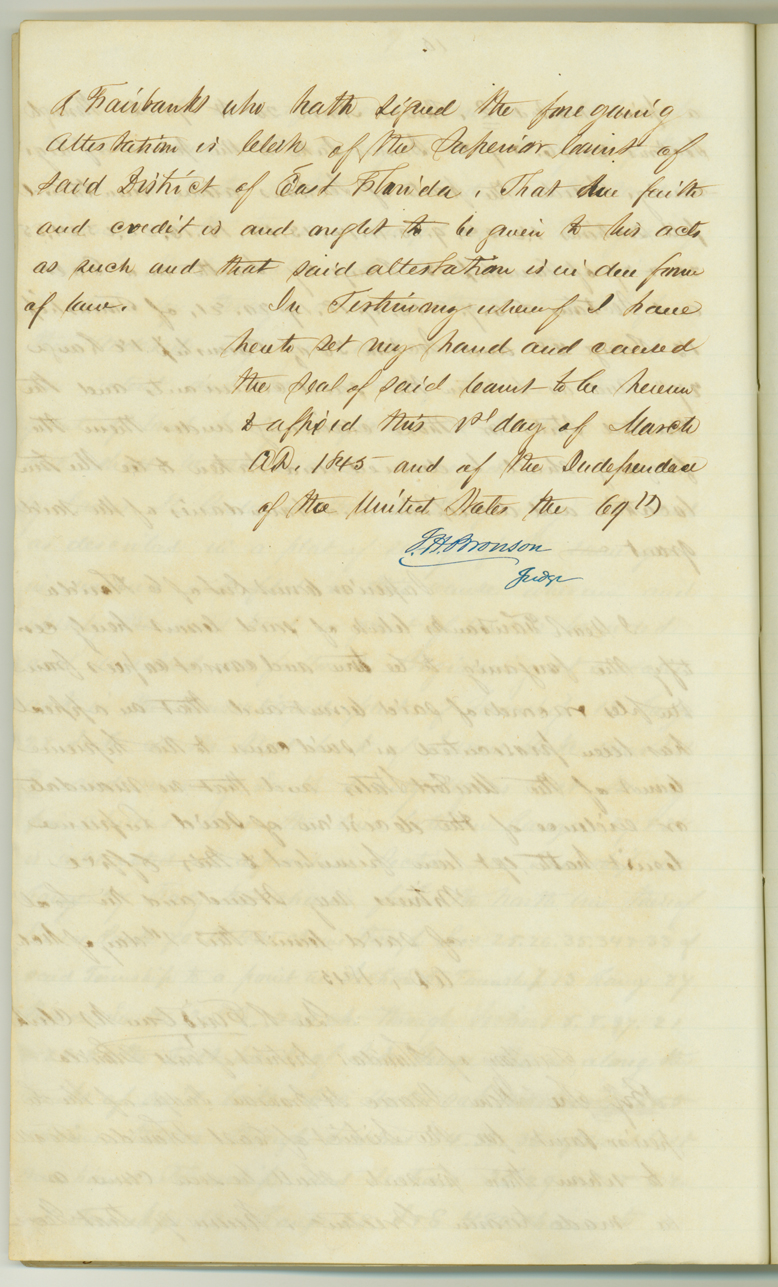 R Fairbanks who hath signed the foregoing
attestation is Clerk of the Superior Court of
said District of East Florida. That due faith
and credit is and ought to be given to his acts
as such and that said attestation is in due form
of law. In Testimony whereof I have
hereto set my hand and caused
the seal of said Court to be hereun
to affixed this 1st day of March
A.D. 1845 and of the Independence
of the United States the 69th
I.H. Bronson
Judge